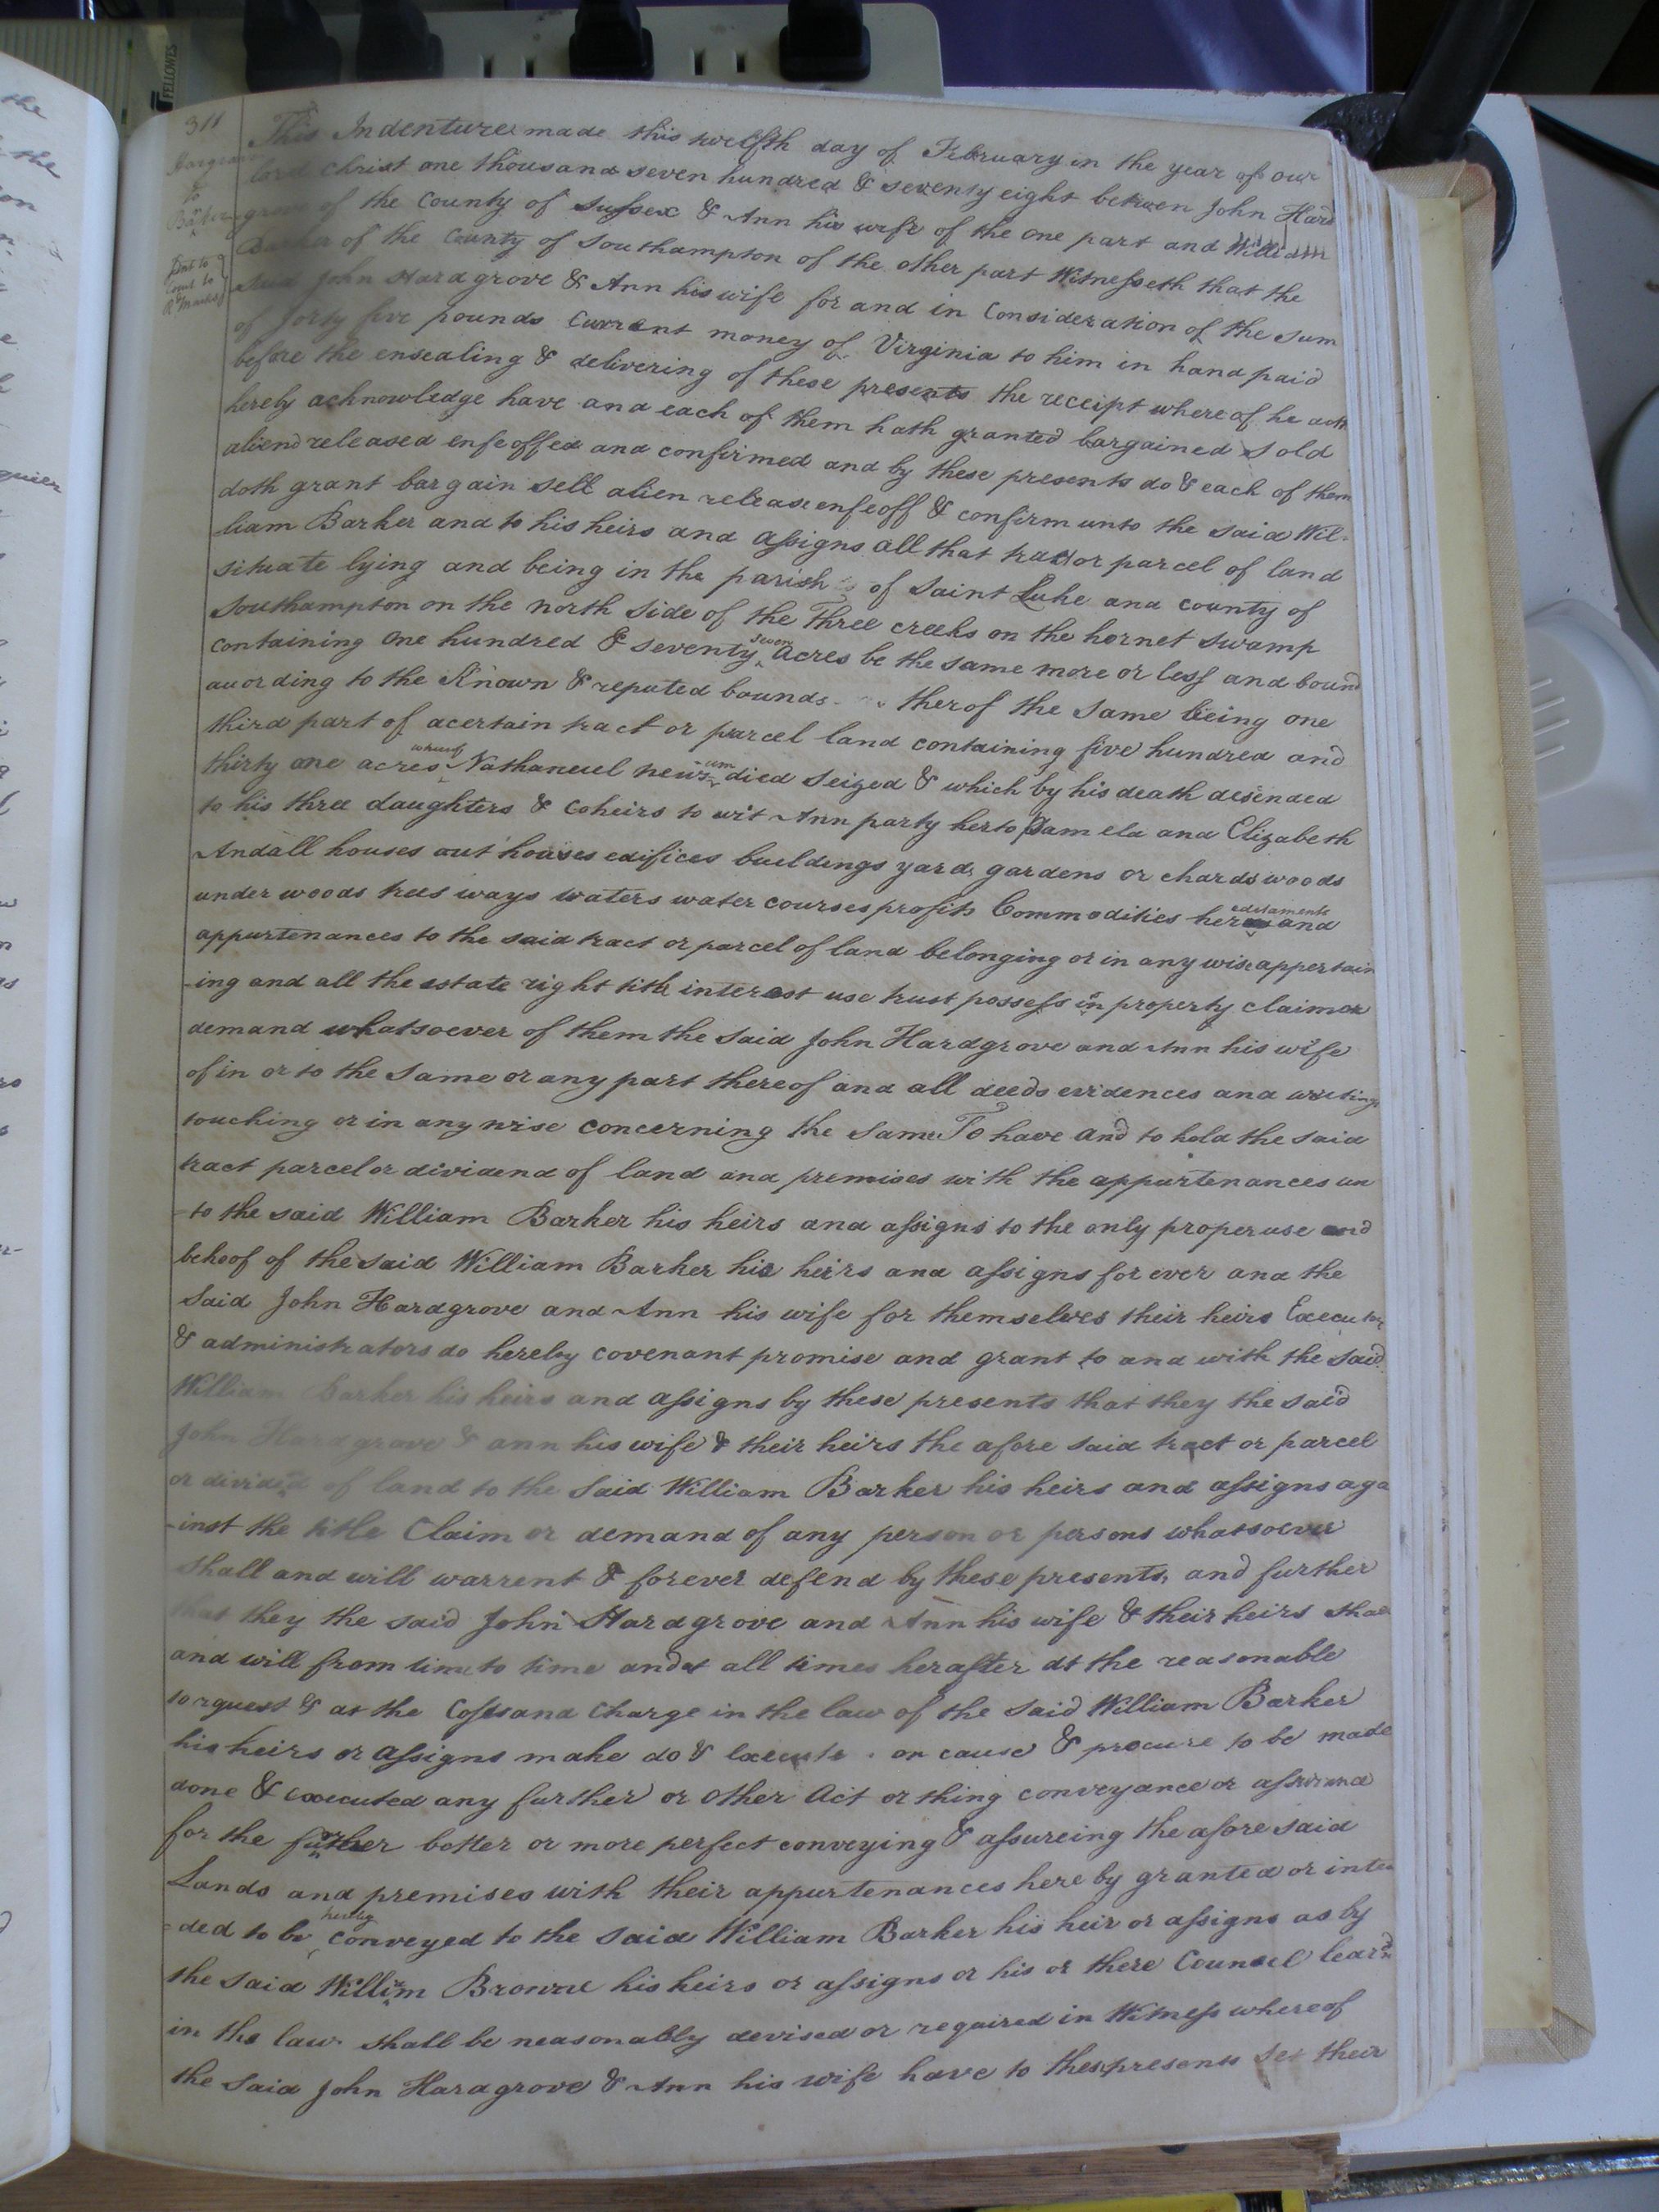 FELLOWES
311
Hargrave
to
Barker
This Indenture made this twelfth day of February in the year of our
lord Christ one thousand seven hundred & seventy eight between John Hard
grove of the County of Sussex & Ann his wife of the one part and William
Barker of the County of Southampton of the other part Witnesseth that the
said John Hardgrove & Ann his wife for and in Consideration of the sum
of forty five pounds Current money of Virginia to him in hand paid
before the ensealing & delivering of these presents the receipt whereof he doth
hereby acknowledge have and each of them hath granted bargained sold
aliend released enfeoffed and confirmed and by these presents do & each of them
doth grant bargain sell alien release enfeoff & confirm unto the said Wil-
liam Barker and to his heirs and assigns all that tract or parcel of land
situate lying and being in the parish of Saint Luke and county of
Southampton on the north side of the Three creeks on the hornet swamp
containing one hundred & seventy seven acres be the same more or less and bound
auording to the Known & reputed bounds therof the same being one
third part of acertain tract or parcel land containing five hundred and
thirty one acres whereof Nathaneul died seized & which by his death desended
to his three daughters & Coheirs to wit Ann party herto Pamela and Elizabeth
And all houses out houses edifices buildings yards gardens or chards woods
under woods trees ways waters water courses profits Commodities hereditaments and
appurtenances to the said tract or parcel of land belonging or in any wise appertain
-ing and all the estate right title interest use trust possess in property claim or
demand whatsoever of them the said John Hardgrove and Ann his wife
of in or to the same or any part thereof and all deeds evidences and writings
touching or in any wise concerning the same To have and to hold the said
tract parcel or dividend of land and premises with the appurtenances un
-to the said William Barker his heirs and assigns to the only proper use and
behoof of the said William Barker his heirs and assigns for ever and the
Said John Hardgrove and Ann his wife for themselves their heirs Executors
& administrators do hereby covenant promise and grant to and with the said
William Barker his heirs and assigns by these presents that they the said
John Hardgrove & ann his wife & their heirs the afore said tract or parcel
or dividend of land to the said William Barker his heirs and assigns aga
-inst the title Claim or demand of any person or persons whatsoever
shall and will warrent & forever defend by these presents and further
that they the said John Hardgrove and Ann his wife & their heirs shall
and will from time to time and at all times herafter at the reasonable
to rquest & at the Costs and Charge in the law of the said William Barker
his heirs or assigns make do & execute or cause & procure to be made
done & executed any further or other Act or thing conveyance or
for the further better or more perfect conveying & assureing the afore said
Lands and premises with their appurtenances here by granted or inten
-ded to be hereby conveyed to the said William Barker his heir or assigns as by
the said William Browne his heirs or assigns or his or there Councel learn
in the law shall be reasonably devised or required in Witness whereof
the said John Hardgrove & Ann his wife have to these presents set their